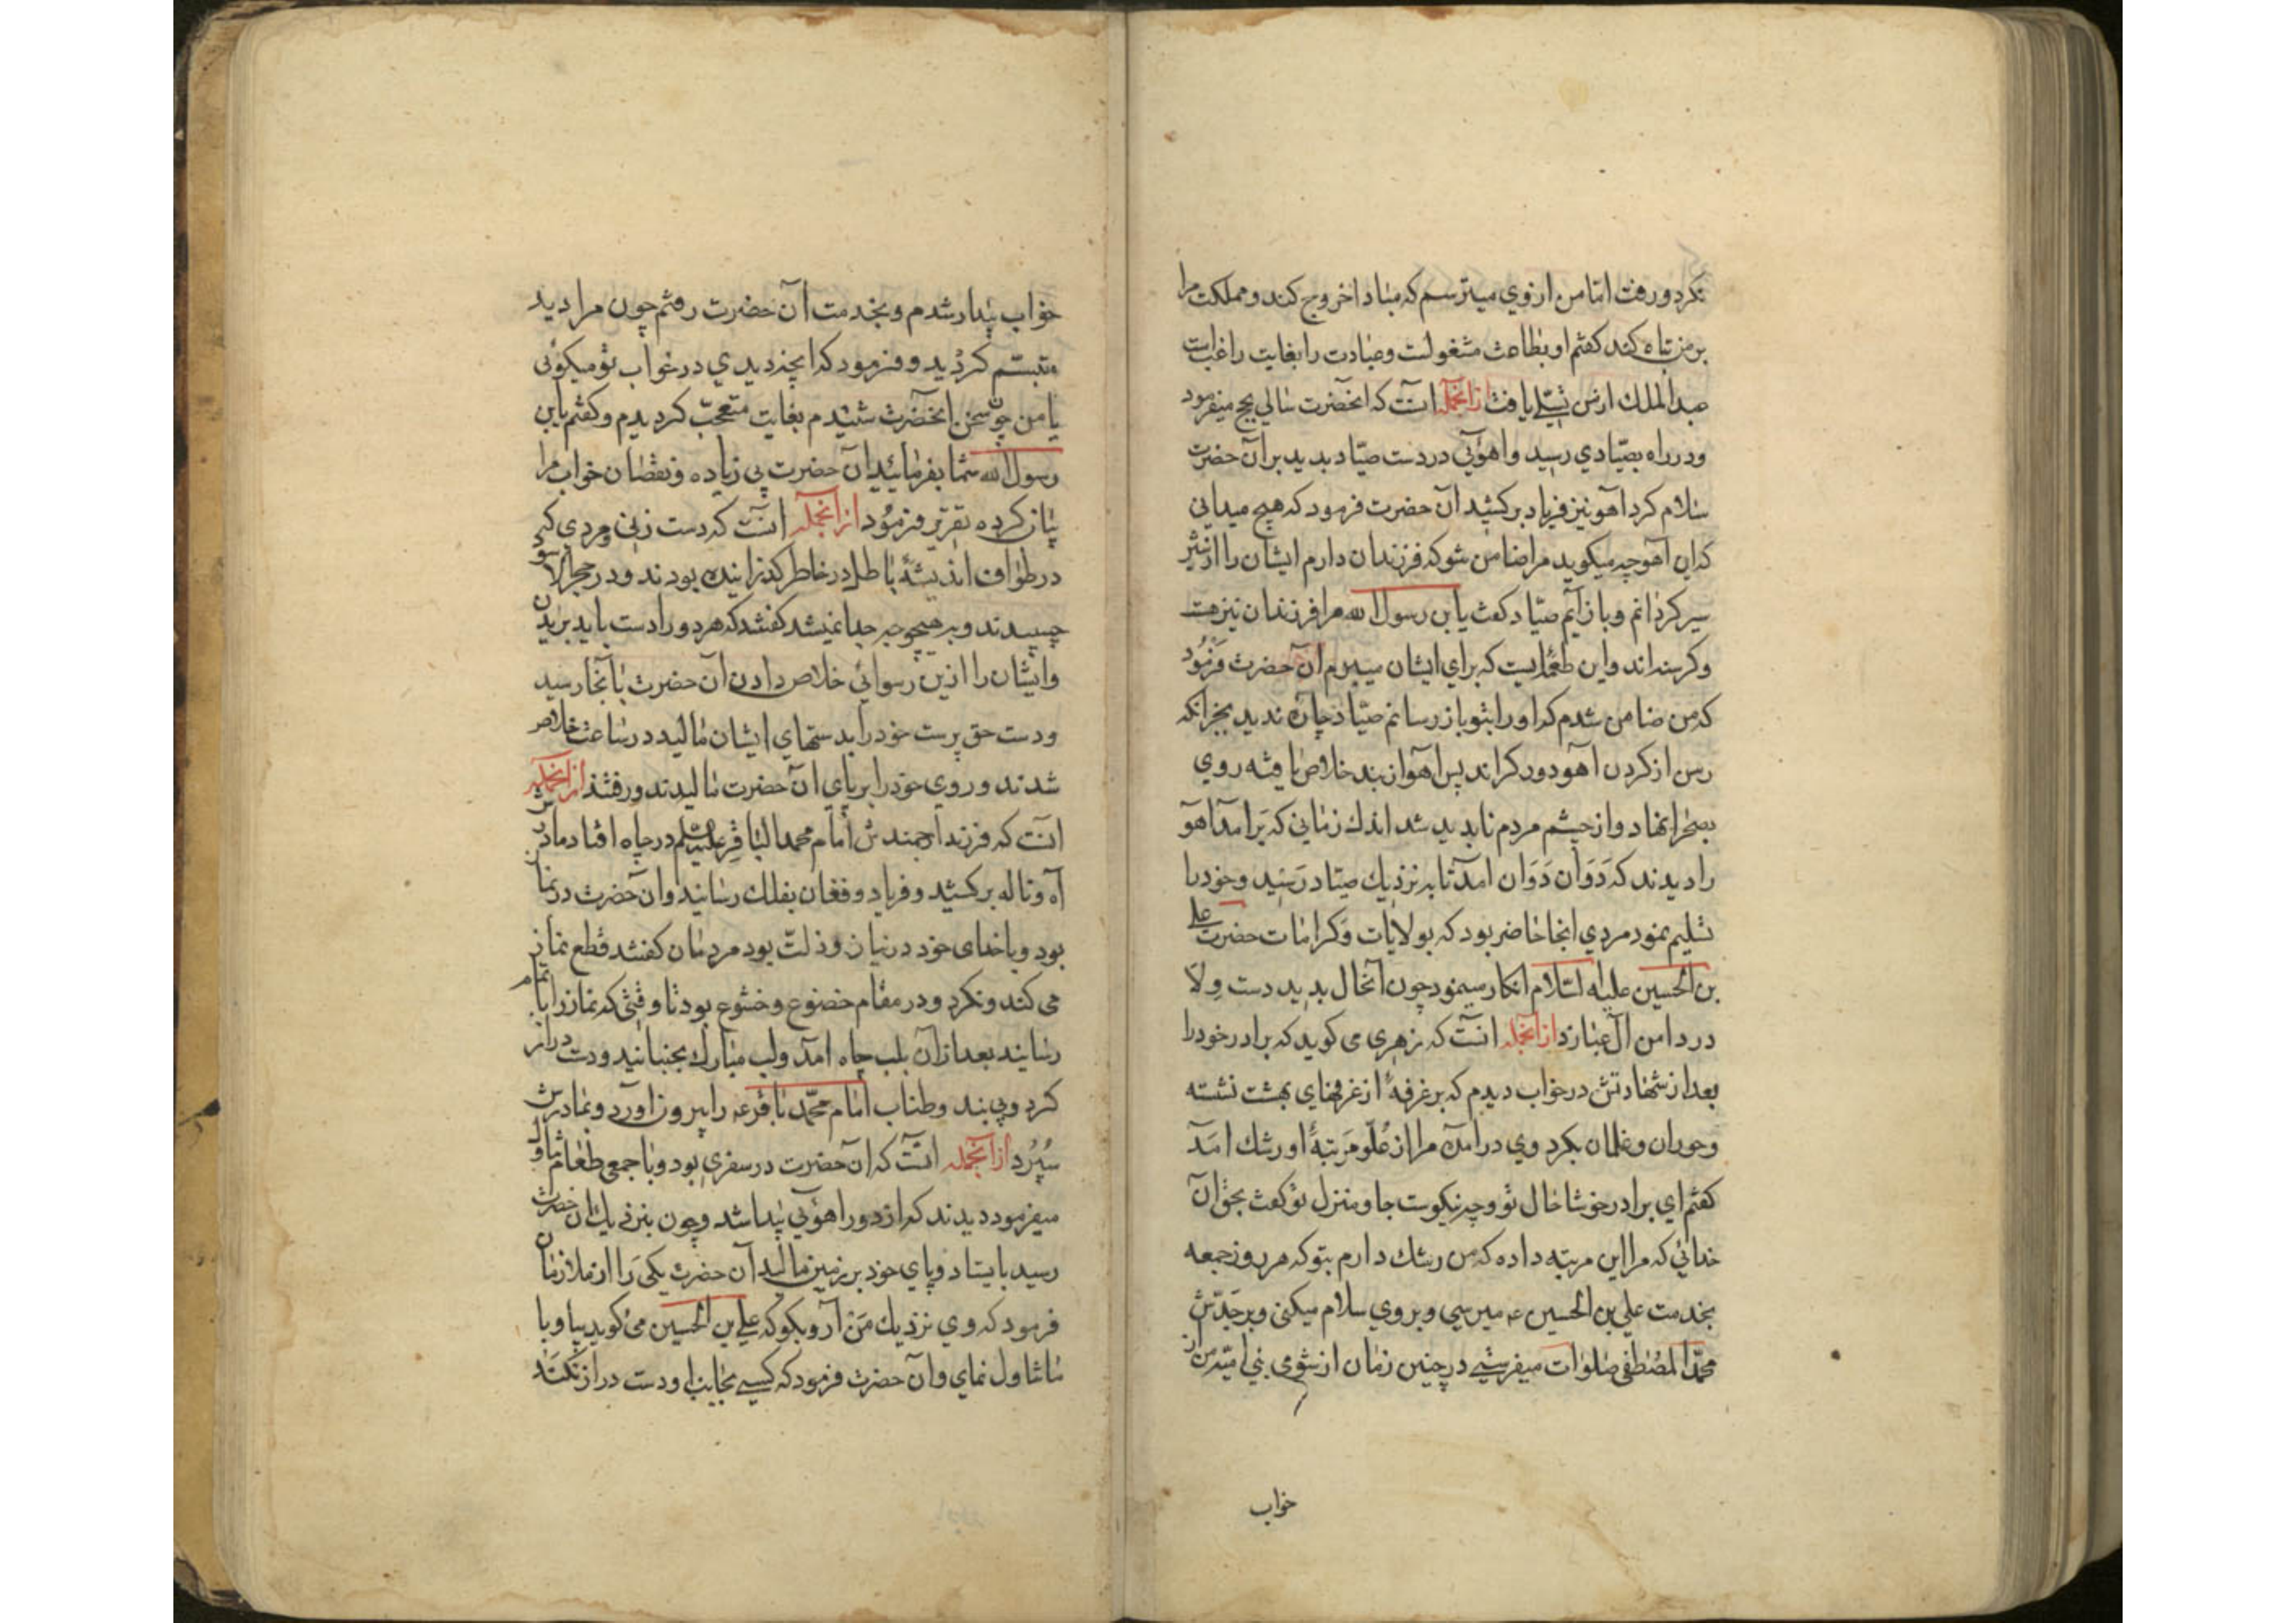 نکرد و رفت اما من از وی میترسم که مبادا خروج کند و مملکت مرا
بر من تباه کند کفتم او بطاعت مشغولست و عبادت را بغایت راغب است
عبدالملک ازین تسلی یافت ازانجمله آنست که انحضرت سالی بحج میفرمود
و در راه بصیادی رسید و اهوئی در دست صیاد بدید بر آن حضرت
سلام کرد آهو نیز فریاد برکشید آن حضرت فرمود که هیچ میدانی
که این آهو چه میکوید مرا ضامن شو که فرزندان دارم ایشان را از شیر
سیر کردانم و باز آیم صیاد کفت یابن رسول الله مرا فرزندان نیز هست
و کرسنه اند و این طعمه ایست که برای ایشان میبرم آن حضرت فرمود
که من ضامن شدم که او را بتو باز رسانم صیاد چاره ندید بجز آنکه
رسن از کردن آهو دور کرداند پس آهو از بند خلاص یافته روی
بصحرا نهاد و از چشم مردم ناپدید شد اندک زمانی که برآمد آهو
را دیدند که دوان دوان آمد تا به نزدیک صیاد رسید و خود را
تسلیم نمود مردی انجا حاضر بود که بولایات و کرامات حضرت علی
بن الحسین علیه السلام انکار مینمود چون آنحال بدید دست ولا
در دامن آل عبا زد ازانجمله آنست که زهری می کوید که برادر خود را
بعد از شهادتش در خواب دیدم که بر غرفهٔ از غرفهای بهشت نشسته
و حوران و غلمان بکرد وی درآمده مرا از علو مرتبهٔ او رشک آمد
کفتم ای برادر خوشا حال تو و چه نیکوست جا و منزل تو کفت بحق آن
خدائی که مرا این مرتبه داده که من رشک دارم بتو که هر روز جمعه
بخدمت علی بن الحسین عه میرسی و بر وی سلام میکنی و بر جدش
محمد المصطفی صلوات میفرستی در چنین زمان از شومی بنی امیه من از
خواب
خواب بیدار شدم و بخدمت آن حضرت رفتم چون مرا دید
متبسم کردید و فرمود که انچه دیدی در خواب تو میکوئی
یا من چون سخن انحضرت شنیدم بغایت متعجب کردیدم و کفتم یابن
رسول الله شما بفرمائید آن حضرت بی زیاده و نقصان خواب مرا
بیان کرده تقریر فرمود ازانجمله آنست که دست زنی و مردی که
در طواف اندیشهٔ باطل در خاطر کذرانیده بودند و در حجر الاسود
چسپیدند و به هیچوجه جدا نمیشد کفتند که هر دو را دست باید بریدن
و ایشان را ازین رسوائی خلاص دادن آن حضرت بآنجا رسید
و دست حق پرست خود را بدستهای ایشان مالید در ساعت خلاص
شدند و روی خود را بر پای آن حضرت مالیدند و رفتند ازانجمله
آنست که فرزند ارجمندش امام محمد الباقر علیه السلم در چاه افتاد مادرش
آه و ناله برکشید و فریاد و فغان بفلک رسانید و آن حضرت در نماز
بود و با خدای خود در نیاز و ذلت بود مردمان کفتند قطع نماز
می کند و نکرد و در مقام خضوع و خشوع بود تا وقتی که نماز را باتمام
رسانید بعد ازآن بلب چاه آمد و لب مبارک بجنبانید و دست دراز
کرد و بی بند و طناب امام محمد باقر عه را بیرون آورد و بمادرش
سپرد ازانجمله آنست که آن حضرت در سفری بود و با جمعی طعام تناول
میفرمود دیدند که از دور اهوئی پیدا شد و چون بنزدیک آن حضرت
رسید بایستاد و پای خود بر زمین مالید آن حضرت یکی را از ملازمان
فرمود که وی نزدیک من آر و بکو که علی بن الحسین می کوید بیا و با
ما تناول نمای و آن حضرت فرمود که کسی بجانب او دست دراز نکند